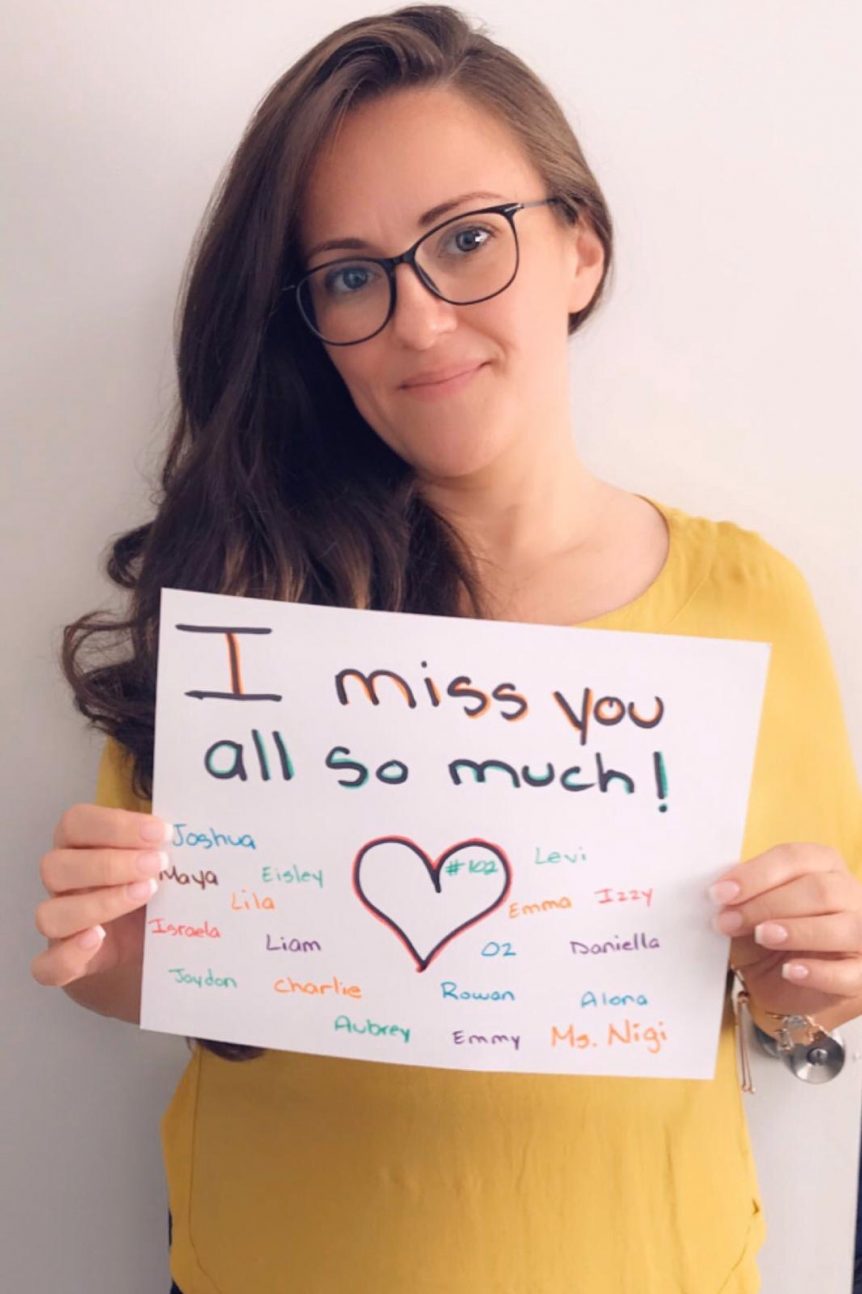 I miss you
all so much!
Joshua
#102
Levi
Maya Eisley
Lila
Emma Izzy
Israela
Liam
OZ Daniella
Jaydon Charlie
Rowan Alona
Aubrey Emmy Ms. Nigi